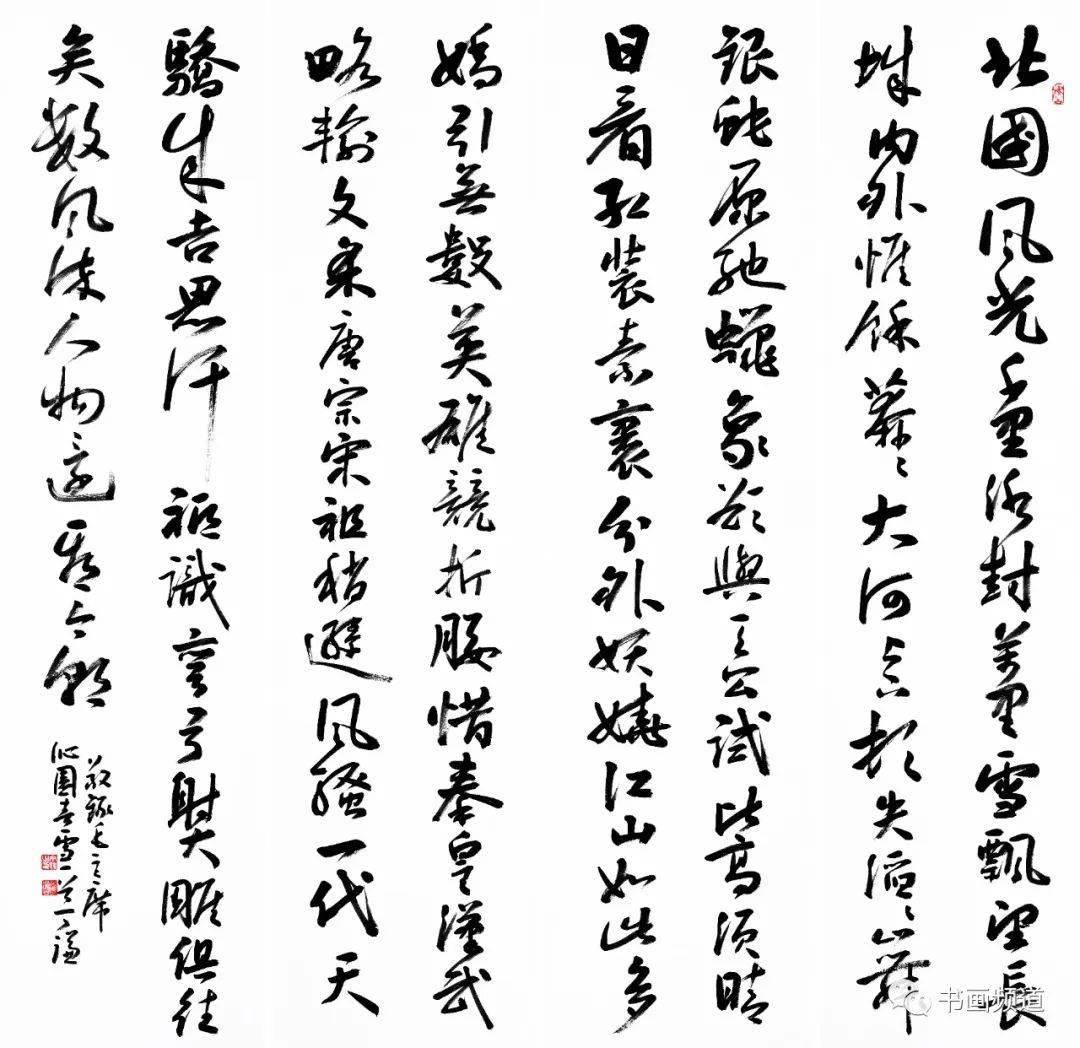 北國風光千里冰封萬里雪飄望長
城內外惟餘莽〻大河上下頓失滔〻山舞
銀蛇原馳蠟象欲與天公試比高須晴
日看紅裝素裹分外妖嬈江山如此多
嬌引無數英雄競折腰惜秦皇漢武
略輸文采唐宗宋祖稍遜風騷一代天
驕成吉思汗祇識彎弓射大雕俱往
矣數風流人物還看今朝
敬錄毛主席
沁園春雪
书画频道